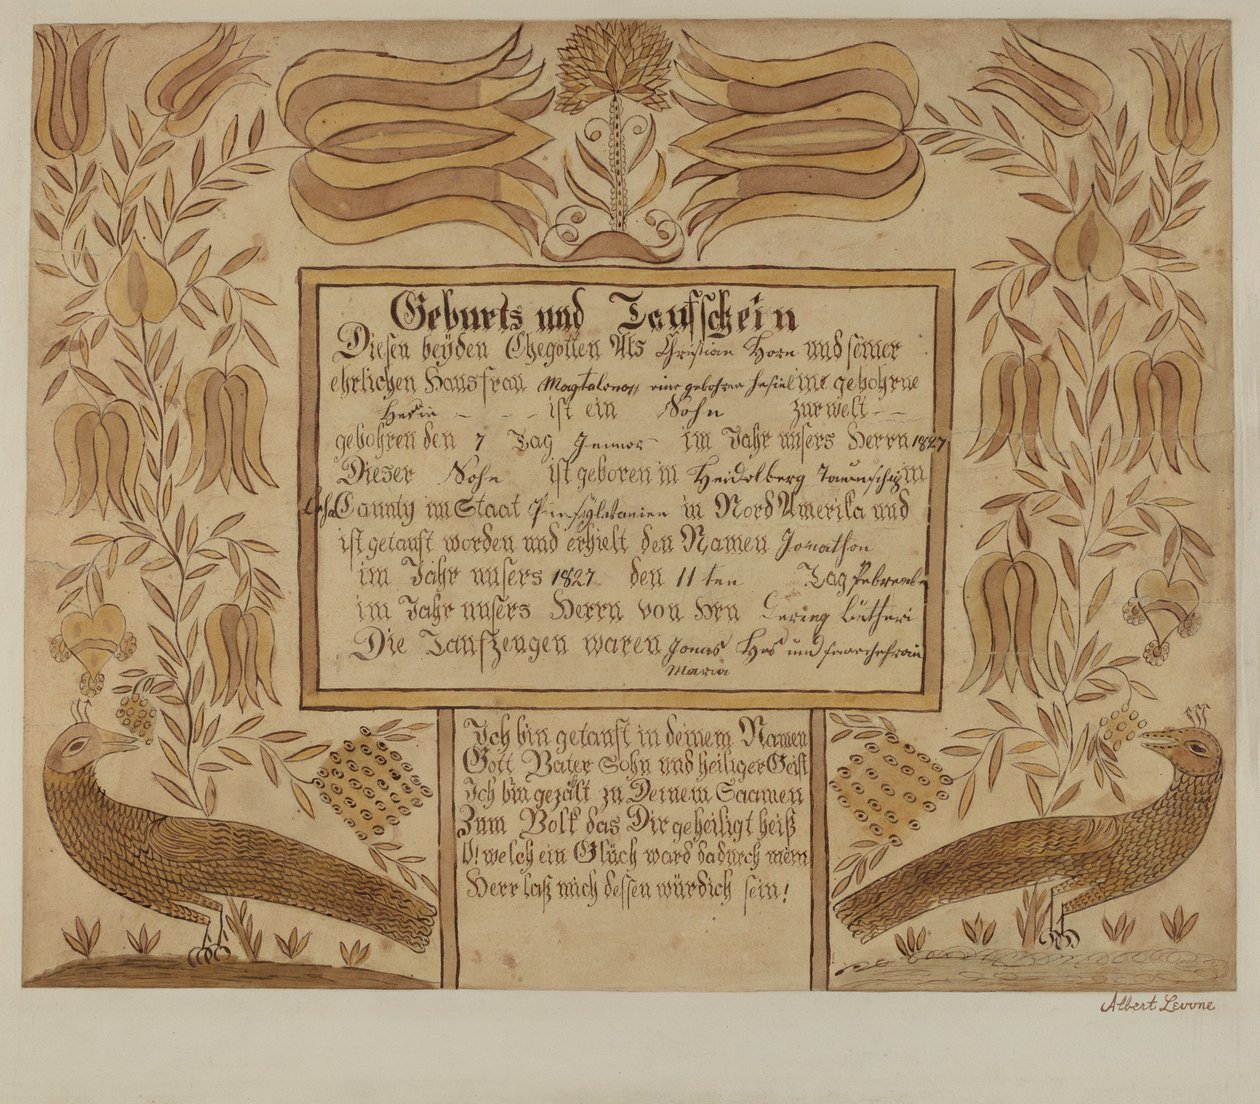 Geburts und Taufschein
Diesen beyden Ehegotten Als Christian Horn und seiner
ehrlichen Hausfrau Magtalena eine gebohrne
ist ein Sohn Zur welt
gebohren den 7 Tag Jenner im Jahr unsers Herrn 1827
Dieser Sohn ist geboren in Heidelberg Taunschip in
County im Staat Pensylvanien in Nord Amerika und
ist getauft worden und erhielt den Namen Jonathon
im Jahr unsers 1827 den 11 ten Tag
im Jahr unsers Herrn von Hrn
Die Taufzeugen waren Jonas Has und
Maria
Ich bin getauft in deinem Namen
Gott Vater Sohn und heiliger Geist
Ich bin gezält zu Deinem Saamen
Zum Volk das Dir geheiligt heiß
O! welch ein Glück ward dadurch mein
Herr laß mich dessen würdich sein!
Albert Levone